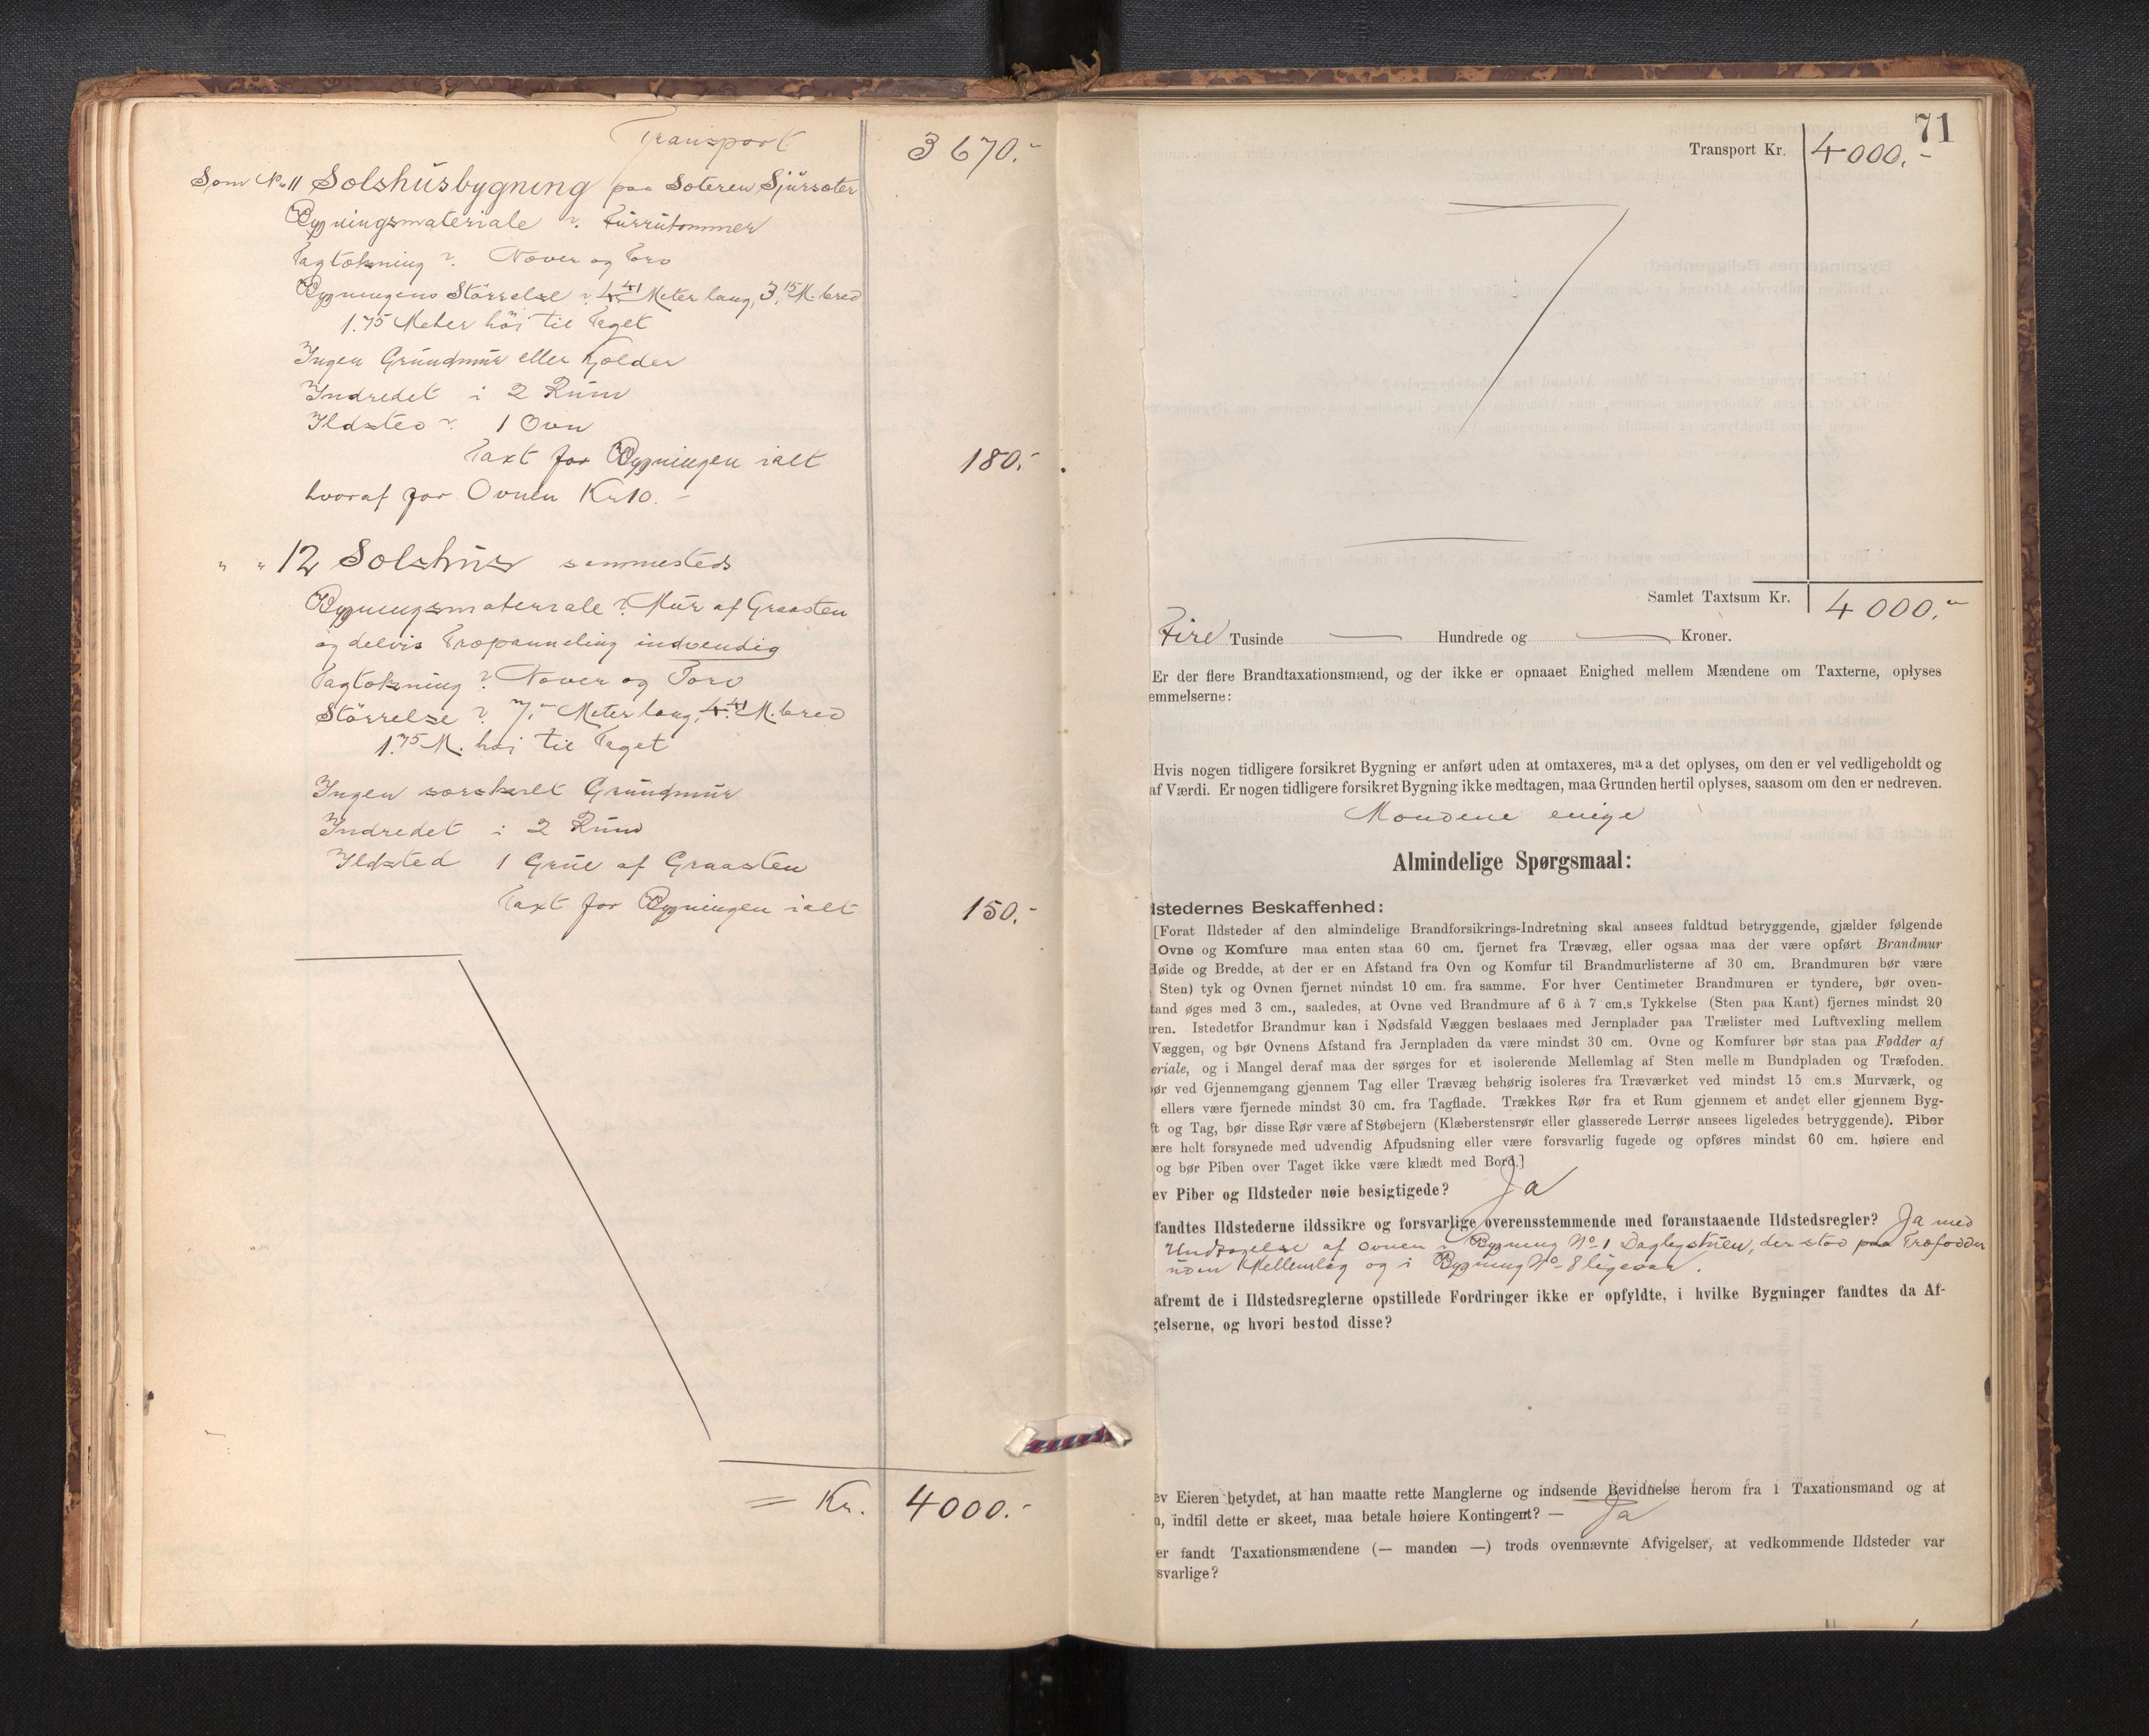 Transport 3670.-
Som No 11 Selshusbygning paa Sæteren Sjursæter
Bygningsmateriale ? Furrutømmer
Tagtækning ? Næver og Torv
Bygningens Störrelse ? 4.41 Meter lang, 3.15 M. bred
1.75 Meter höi til Taget
Ingen Grundmur eller Kjælder
Indredet i 2 Rum
Ildsted ? 1 Ovn
Taxt for Bygningen ialt 180.-
hvoraf for Ovnen Kr 10.-
" " 12 Selshus sammesteds
Bygningsmateriale ? Mur af Graasten
og delvis Træpanneling indvendig
Tagtækning ? Næver og Torv
Störrelse ? 7,- Meter lang, 4.41 M. bred
1.75 M. høi til Taget
Ingen særskilt Grundmur
Indredet i 2 Rum
Ildsted 1 Grue af Graasten
Taxt for Bygningen ialt 150.-
= Kr. 4000.-
71
Transport Kr. 4000.-
Samlet Taxtsum Kr. 4000.-
Fire Tusinde — Hundrede og — Kroner.
Er der flere Brandtaxationsmænd, og der ikke er opnaaet Enighed mellem Mændene om Taxterne, oplyses
emmelserne:
Hvis nogen tidligere forsikret Bygning er anført uden at omtaxeres, maa det oplyses, om den er vel vedligeholdt og
af Værdi. Er nogen tidligere forsikret Bygning ikke medtagen, maa Grunden hertil oplyses, saasom om den er nedreven.
Mændene enige
Almindelige Spørgsmaal:
lstedernes Beskaffenhed:
[Forat Ildsteder af den almindelige Brandforsikrings-Indretning skal ansees fuldtud betryggende, gjælder følgende
Ovne og Komfure maa enten staa 60 cm. fjernet fra Trævæg, eller ogsaa maa der være opført Brandmur
Høide og Bredde, at der er en Afstand fra Ovn og Komfur til Brandmurlisterne af 30 cm. Brandmuren bør være
Sten) tyk og Ovnen fjernet mindst 10 cm. fra samme. For hver Centimeter Brandmuren er tyndere, bør oven-
tand øges med 3 cm., saaledes, at Ovne ved Brandmure af 6 à 7 cm.s Tykkelse (Sten paa Kant) fjernes mindst 20
uren. Istedetfor Brandmur kan i Nødsfald Væggen beslaaes med Jernplader paa Trælister med Luftvexling mellem
Væggen, og bør Ovnens Afstand fra Jernpladen da være mindst 30 cm. Ovne og Komfurer bør staa paa Fødder af
eriale, og i Mangel deraf maa der sørges for et isolerende Mellemlag af Sten mellem Bundpladen og Træfoden.
ør ved Gjennemgang gjennem Tag eller Trævæg behørig isoleres fra Træværket ved mindst 15 cm.s Murværk, og
ellers være fjernede mindst 30 cm. fra Tagflade. Trækkes Rør fra et Rum gjennem et andet eller gjennem Byg-
ft og Tag, bør disse Rør være af Støbejern (Klæberstensrør eller glasserede Lerrør ansees ligeledes betryggende). Piber
ære helt forsynede med udvendig Afpudsning eller være forsvarlig fugede og opføres mindst 60 cm. høiere end
og bør Piben over Taget ikke være klædt med Bord.]
ev Piber og Ildsteder nøie besigtigede? Ja
fandtes Ildstederne ildssikre og forsvarlige overensstemmende med foranstaaende Ildstedsregler? Ja med
Undtagelse af Ovnen i Bygning No 1 Daglegstuen, der stod paa Træfødder
uden Mellemlag og i Bygning No 8 ligesaa.
afremt de i Ildstedsreglerne opstillede Fordringer ikke er opfyldte, i hvilke Bygninger fandtes da Af-
gelserne, og hvori bestod disse?
ev Eieren betydet, at han maatte rette Manglerne og indsende Bevidnelse herom fra 1 Taxationsmand og at
n, indtil dette er skeet, maa betale høiere Kontingent? — Ja
er fandt Taxationsmændene (— manden —) trods ovennævnte Afvigelser, at vedkommende Ildsteder var
svarlige?